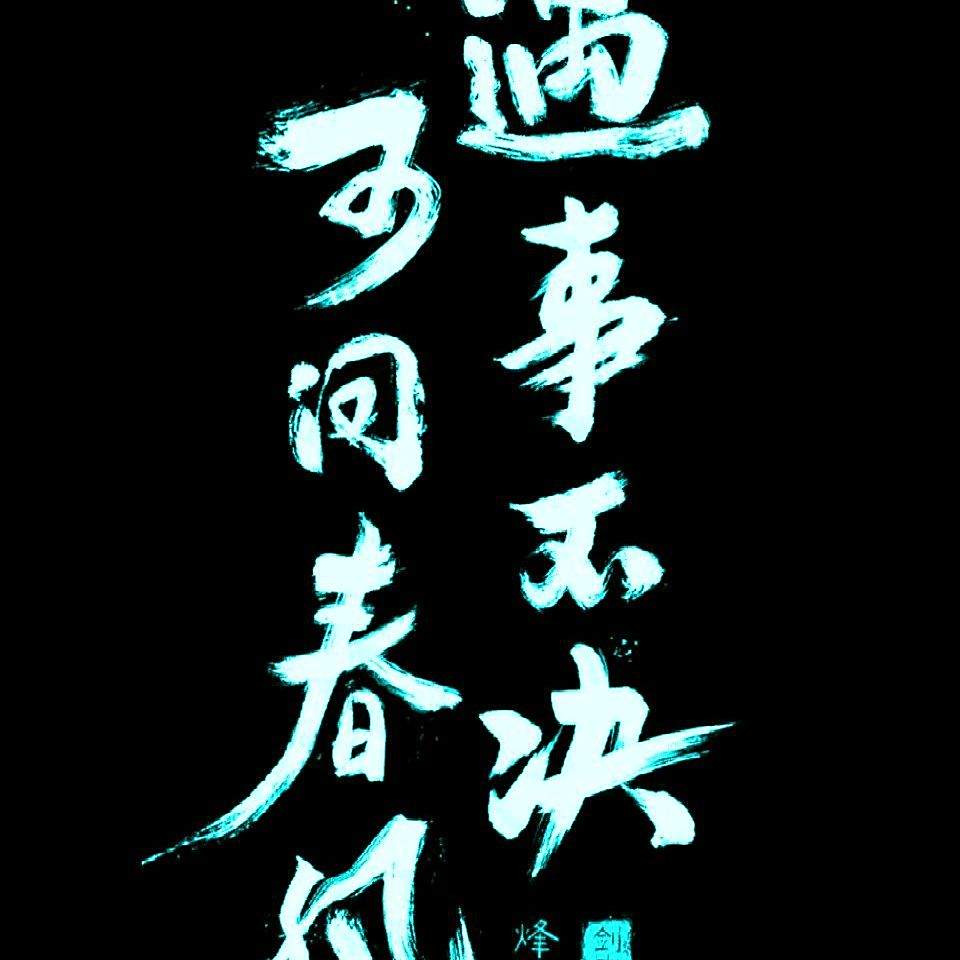 遇事不决
可问春风
烽
剑